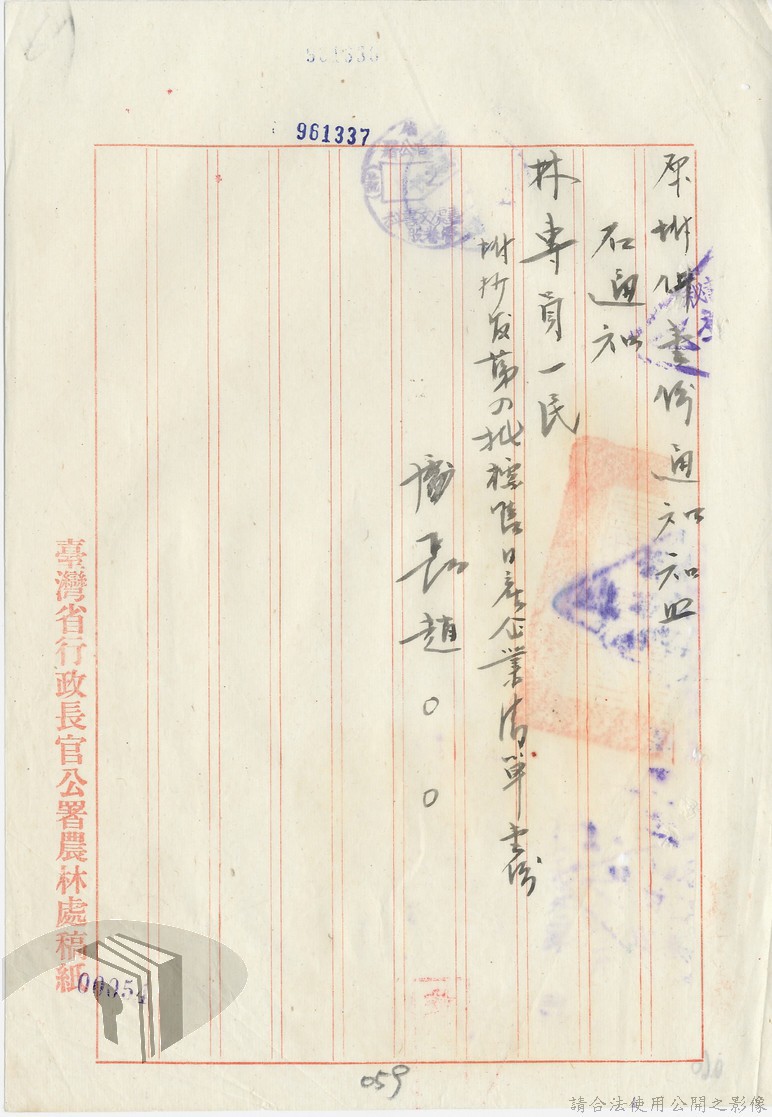 961337
原附件壹份通知知照
右通知
林專員一民
附抄发第四批標售日產企業清單壹份
處長趙〇〇
臺灣省行政長官公署農林處稿紙
00054
059
請合法使用公開之影像